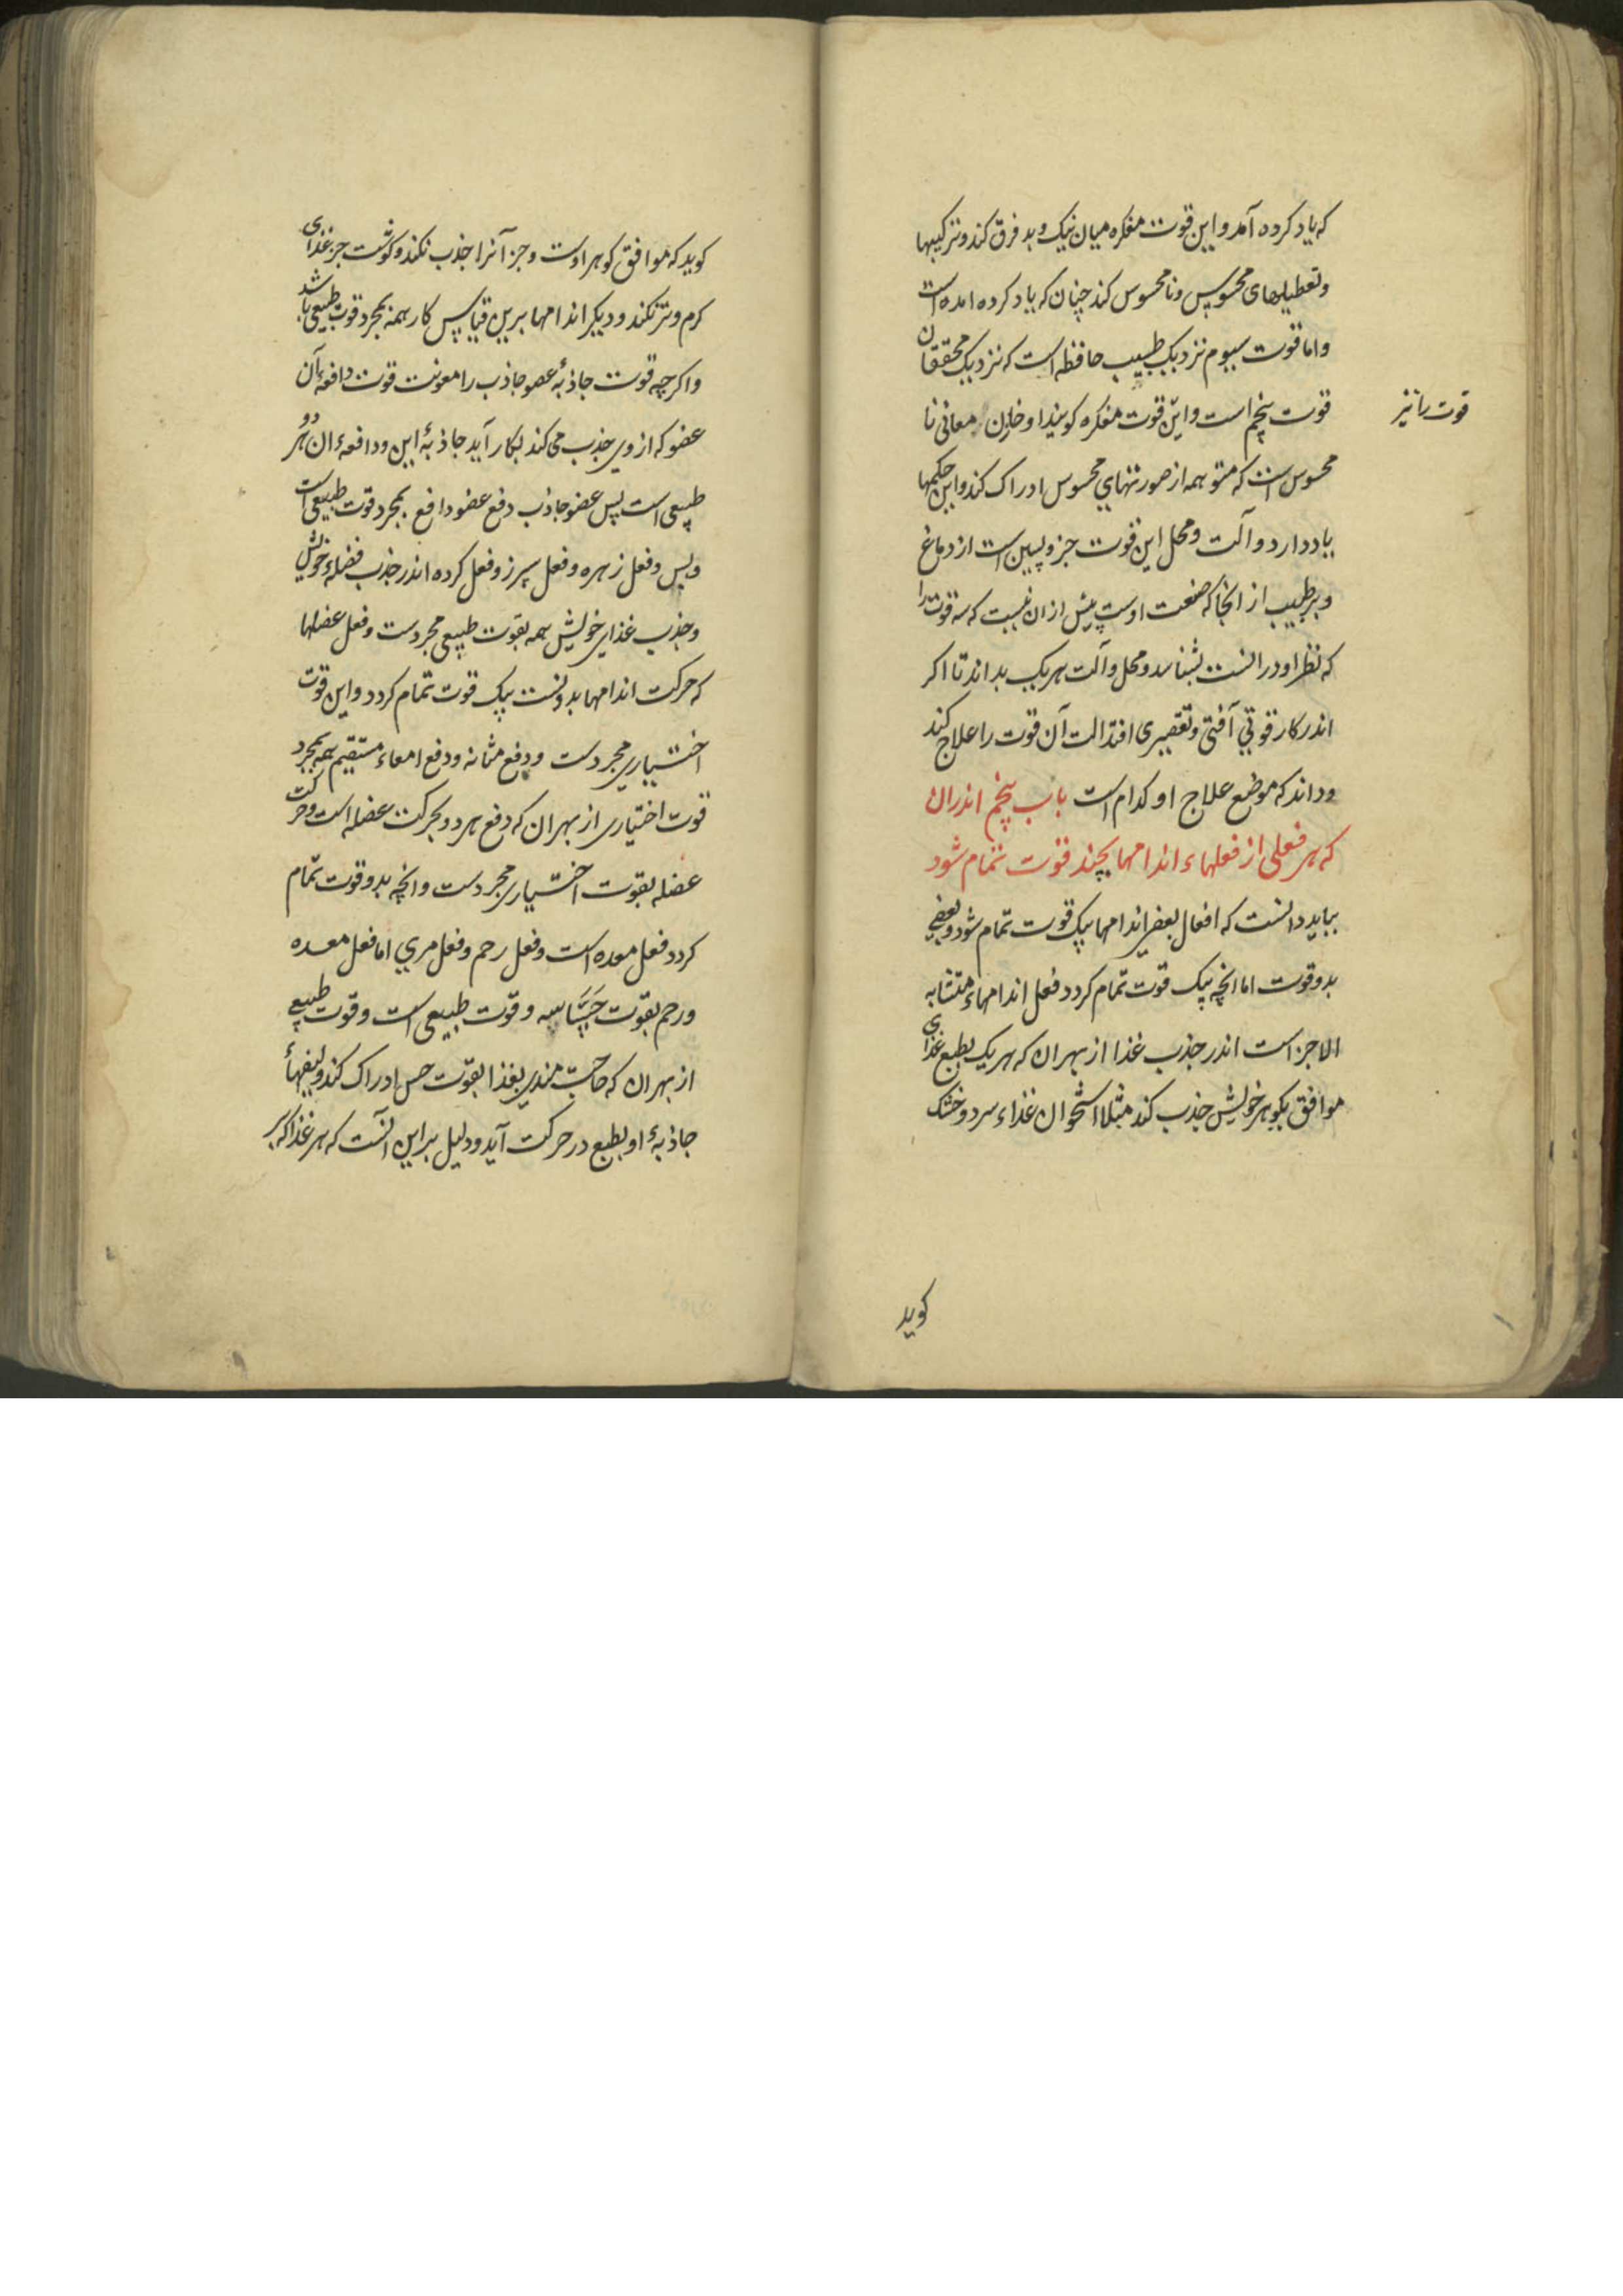 که یاد کرده آمد و این قوت مفکره میان نیک و بد فرق کند و ترکیبها
و تعطیلهای محسوس و نامحسوس کند چنان که یاد کرده امده است
و اما قوت سیوم نزدیک طبیب حافظه است که نزدیک محققان
قوت پنجم است و این قوت مفکره کویند او خازن معانی نا
قوت را نیز
محسوس است که متوهمه از صورتهای محسوس ادراک کند و این حکمها
یاد دارد و آلت و محل این قوت جزو پسین است از دماغ
و بر طبیب از انجا که صنعت اوست پیش از ان نیست که سه قوت را
که نظر او در انست بشناسد و محل و آلت هر یک بداند تا اکر
اندر کار قوتی آفتی و تقصیری افتد الت آن قوت را علاج کند
و داند که موضع علاج او کدام است باب پنجم اندران
که هر فعلی از فعلهاء اندامها بچند قوت تمام شود
بباید دانست که افعال بعضی اندامها بیک قوت تمام شود و بعضی
بدو قوت اما انچه بیک قوت تمام کردد فعل اندامهاء متشابه
الاجزاست اندر جذب غذا از بهر ان که هر یک بطبع غذای
موافق بکوهر خویش جذب کند مثلا استخوان غذاء سرد و خشک
کوید
کوید که موافق کوهر اوست و جز آنرا جذب نکند و کوشت جز غذای
کرم و تر نکند و دیکر اندامها برین قیاس کار همه بمجرد قوت طبیعی باشد
و اکر چه قوت جاذبهٔ عضو جاذب را معونت قوت دافعهٔ آن
عضو که از وی جذب می کند بکار آید جاذبهٔ این و دافعهٔ ان هر دو
طبیعی است پس عضو جاذب دفع عضو دافع بمجرد قوت طبیعی است
و بس و فعل زهره و فعل سپرز و فعل کرده اندر جذب فضلهٔ خویش
و جذب غذای خویش همه بقوت طبیعی مجردست و فعل عضلها
که حرکت اندامها بدوست بیک قوت تمام کردد و این قوت
اختیاری مجردست و دفع مثانه و دفع امعاء مستقیم همه بمجرد
قوت اختیاری از بهر ان که دفع هر دو بحرکت عضله است و حرکت
عضله بقوت اختیاری مجردست و انچه بدو قوت تمام
کردد فعل معده است و فعل رحم و فعل مری اما فعل معده
و رحم بقوت حساسه و قوت طبیعی است و قوت طبیعی
از بهر ان که حاجت مندی بغذا بقوت حس ادراک کند و لیفهاء
جاذبهٔ او بطبع در حرکت آید و دلیل بر این آنست که هر غذا که بر